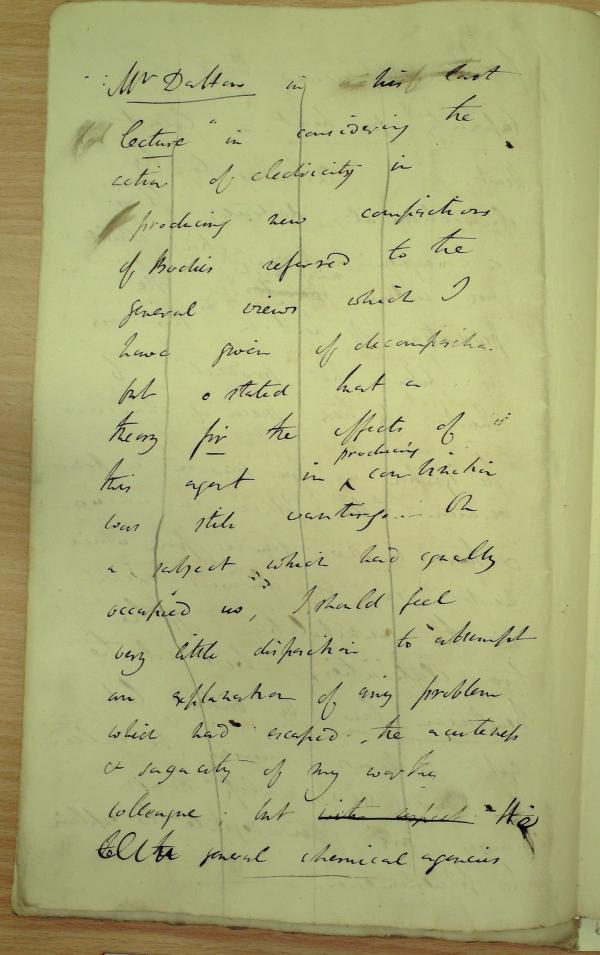 Mr Dalton in his last
lecture in considering the
action of electricity in
producing new compositions
of Bodies referred to the
general views which I
have given of decomposition
but stated that a
theory for the effects of
this agent in producing combination
was still wanting. On
a subject which had equally
occupied us, I should feel
very little disposition to attempt
an explanation of any problem
which had escaped the acuteness
& sagacity of my worthy
colleague; but with respect the
general chemical agencies